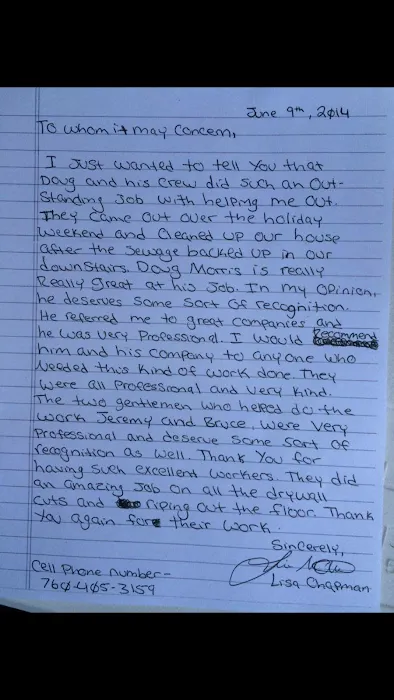 June 9th, 2014
To whom it may concern,
I Just wanted to tell you that
Doug and his crew did such an out-
standing job with helping me out.
They came out over the holiday
weekend and cleaned up our house
after the sewage backed up in our
downstairs. Doug Morris is really
Really great at his job. In my opinion,
he deserves some sort of recognition.
He referred me to great companies and
he was very professional. I would Recommend
him and his company to anyone who
needed this kind of work done. They
were all professional and very kind.
The two gentlemen who helped do the
work Jeremy and Bryce, were very
professional and deserve some sort of
recognition as well. Thank you for
having such excellent workers. They did
an amazing job on all the drywall
cuts and riping out the floor. Thank
you again for their work.
Sincerely,
Lisa Chapman
Cell Phone number-
760-405-3159